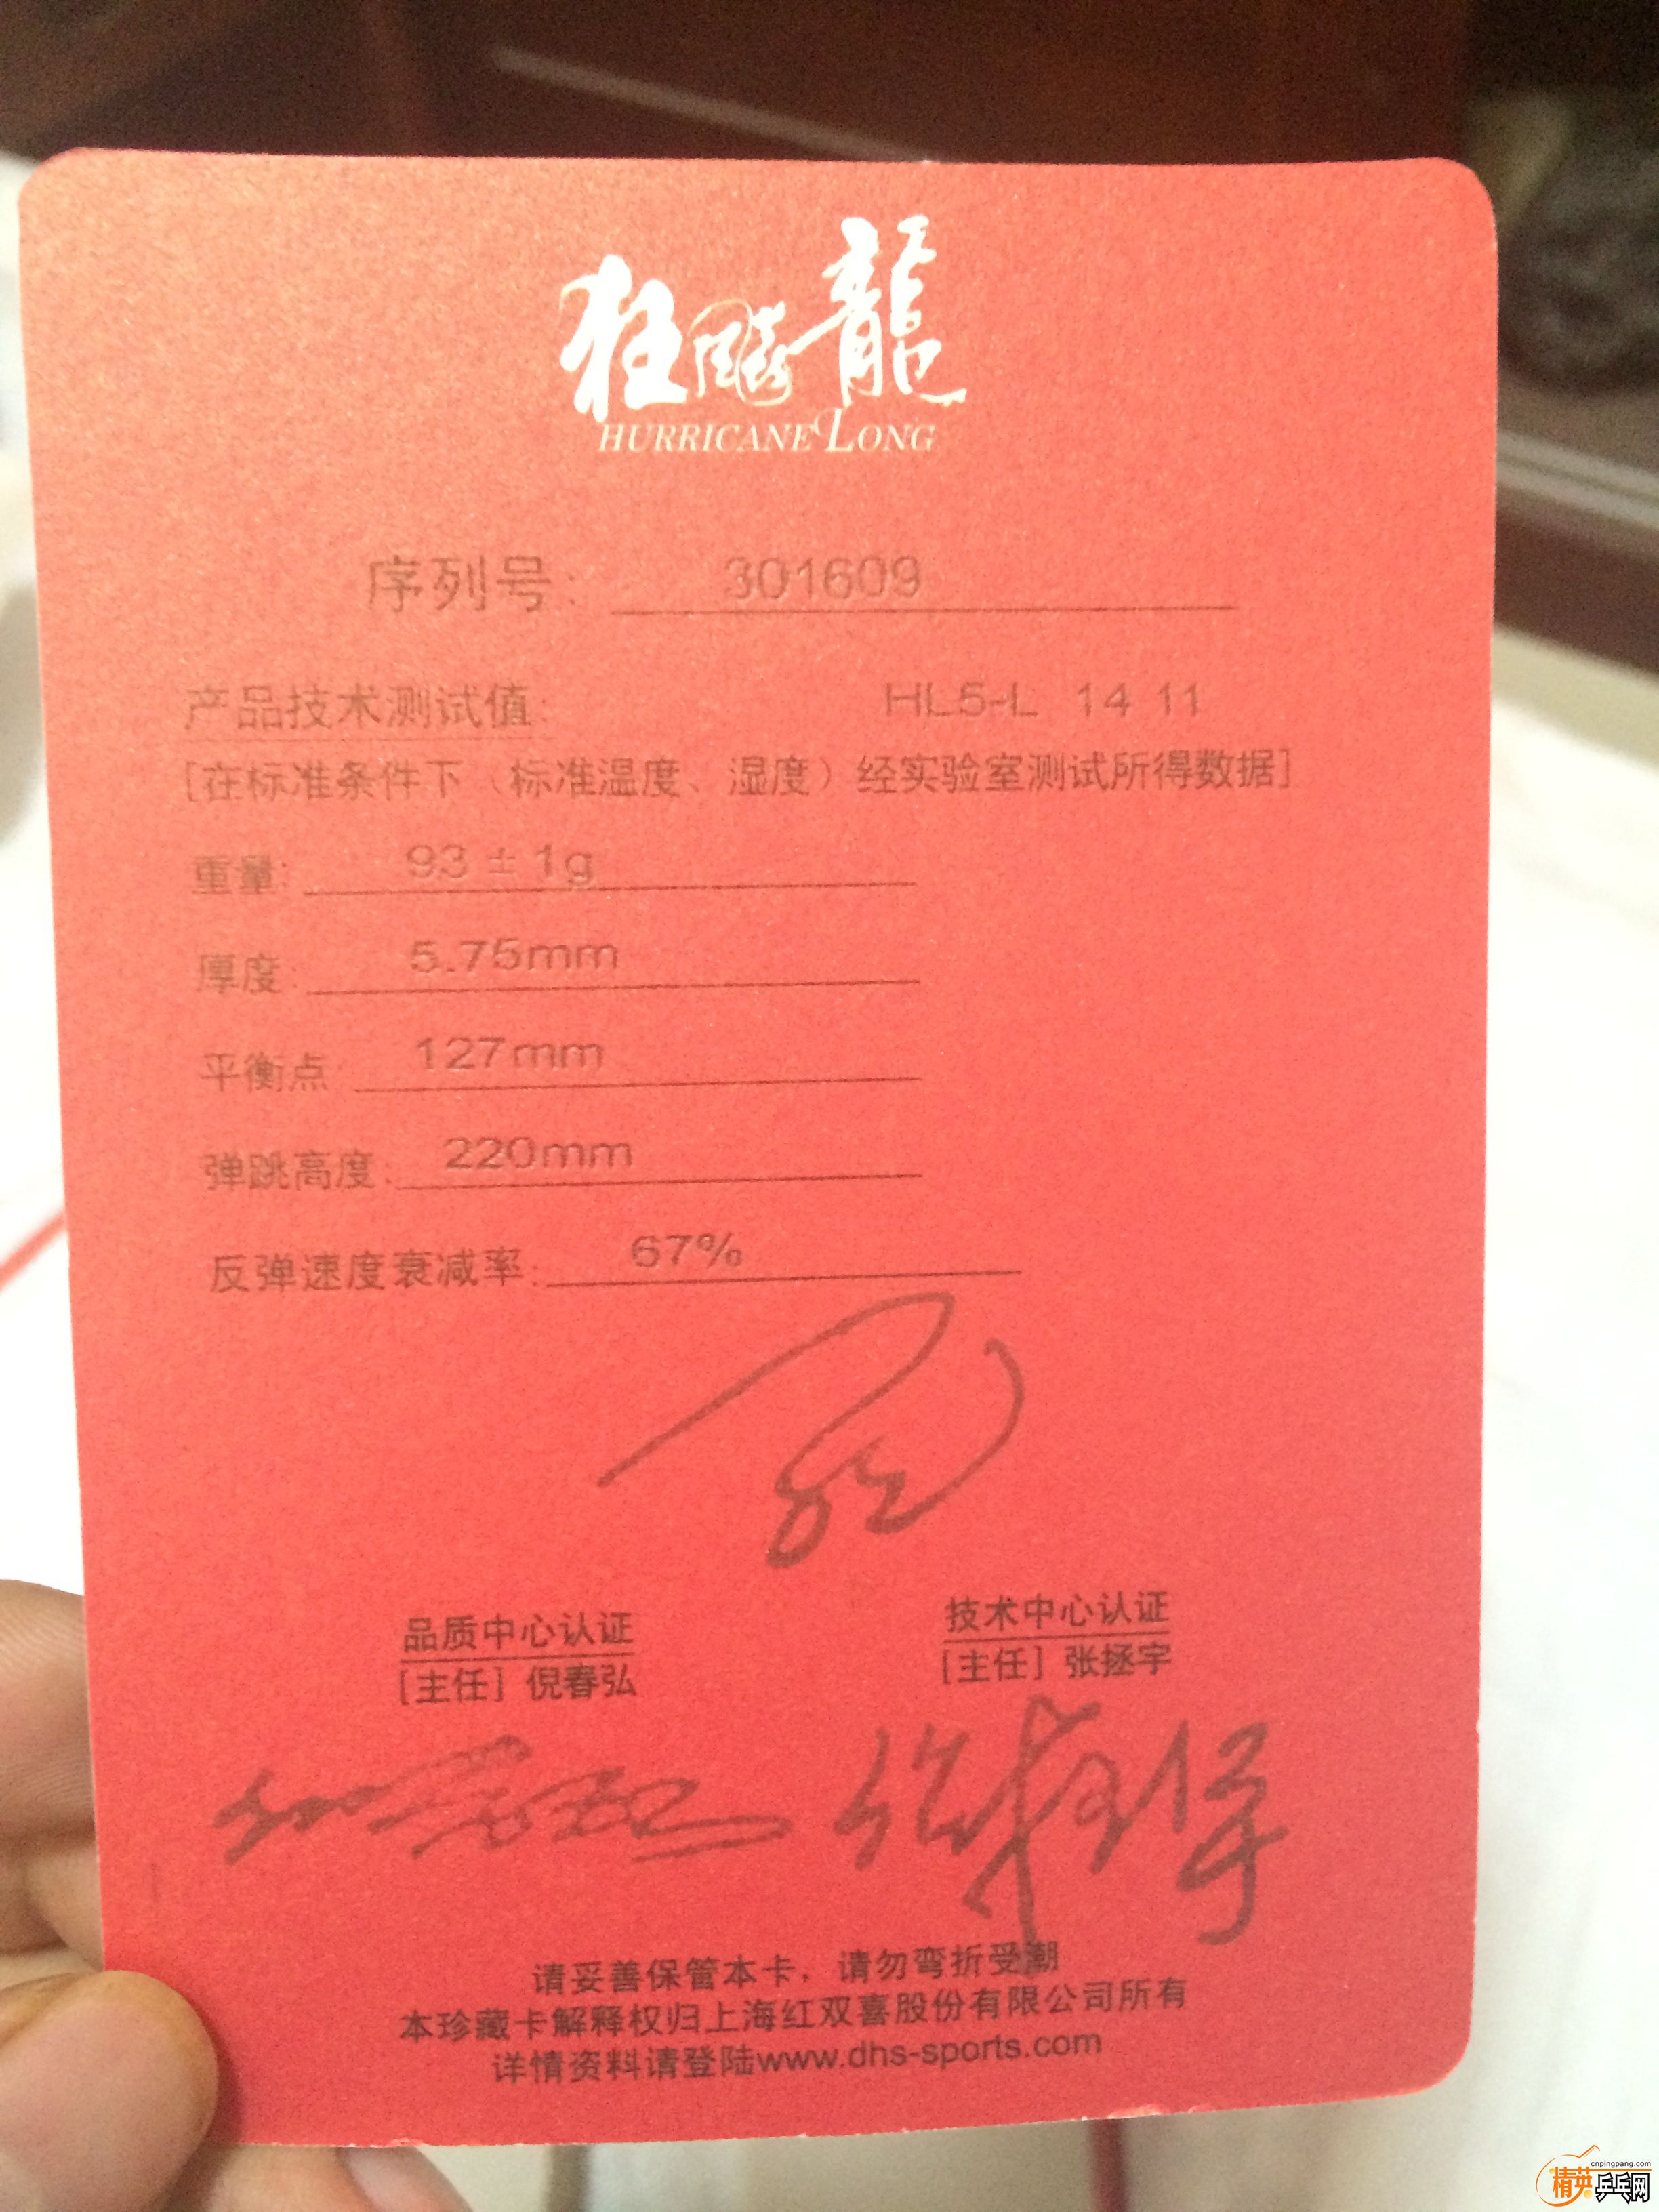 狂飚龍
HURRICANE LONG
序列号: 301609
产品技术测试值: HL5-L 14 11
[在标准条件下（标准温度、湿度）经实验室测试所得数据]
重量: 93 ± 1g
厚度: 5.75mm
平衡点: 127mm
弹跳高度: 220mm
反弹速度衰减率: 67%
品质中心认证 技术中心认证
[主任] 倪春弘 [主任] 张拯宇
请妥善保管本卡，请勿弯折受潮
本珍藏卡解释权归上海红双喜股份有限公司所有
详情资料请登陆www.dhs-sports.com
cnpingpang.com
精英乒乓网